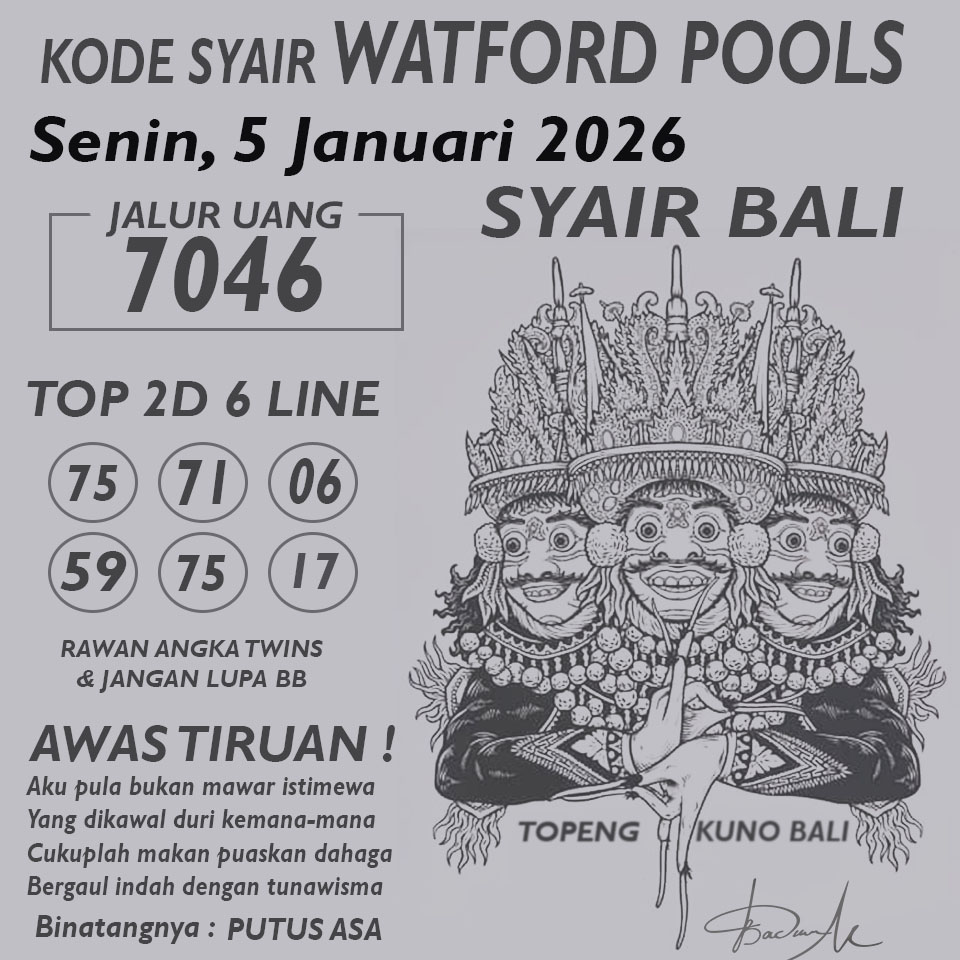 KODE SYAIR WATFORD POOLS
Senin, 5 Januari 2026
SYAIR BALI
JALUR UANG
7046
TOP 2D 6 LINE
75 71 06
59 75 17
RAWAN ANGKA TWINS
& JANGAN LUPA BB
AWAS TIRUAN !
Aku pula bukan mawar istimewa
Yang dikawal duri kemana-mana
Cukuplah makan puaskan dahaga
Bergaul indah dengan tunawisma
Binatangnya : PUTUS ASA
TOPENG KUNO BALI